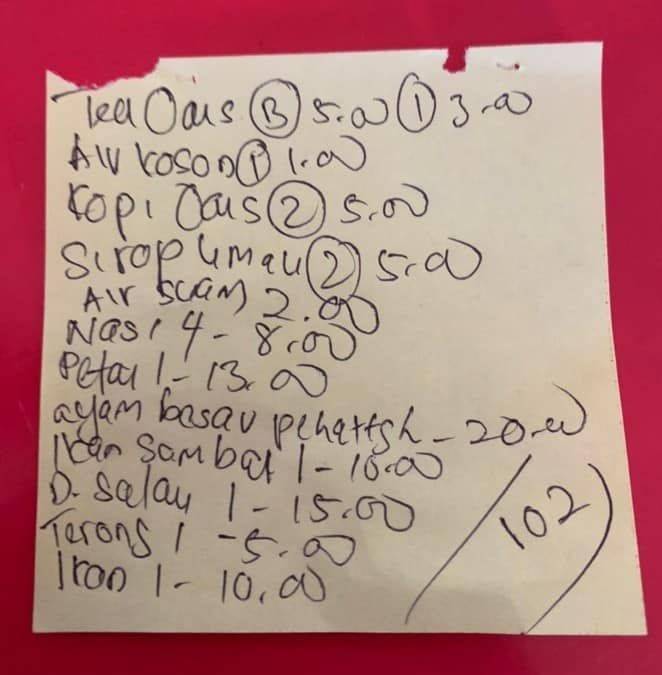 Tea Oais (B) 5.00 (1) 3.00
Air Koson (1) 1.00
Kopi Oais (2) 5.00
Sirop Limau (2) 5.00
Air Suam 2.00
Nasi 4 - 8.00
Petai 1 - 13.00
ayam besar - 20.00
Ikan Sambal 1 - 10.00
D. Salay 1 - 15.00
Terong 1 - 5.00
Ikan 1 - 10.00
102